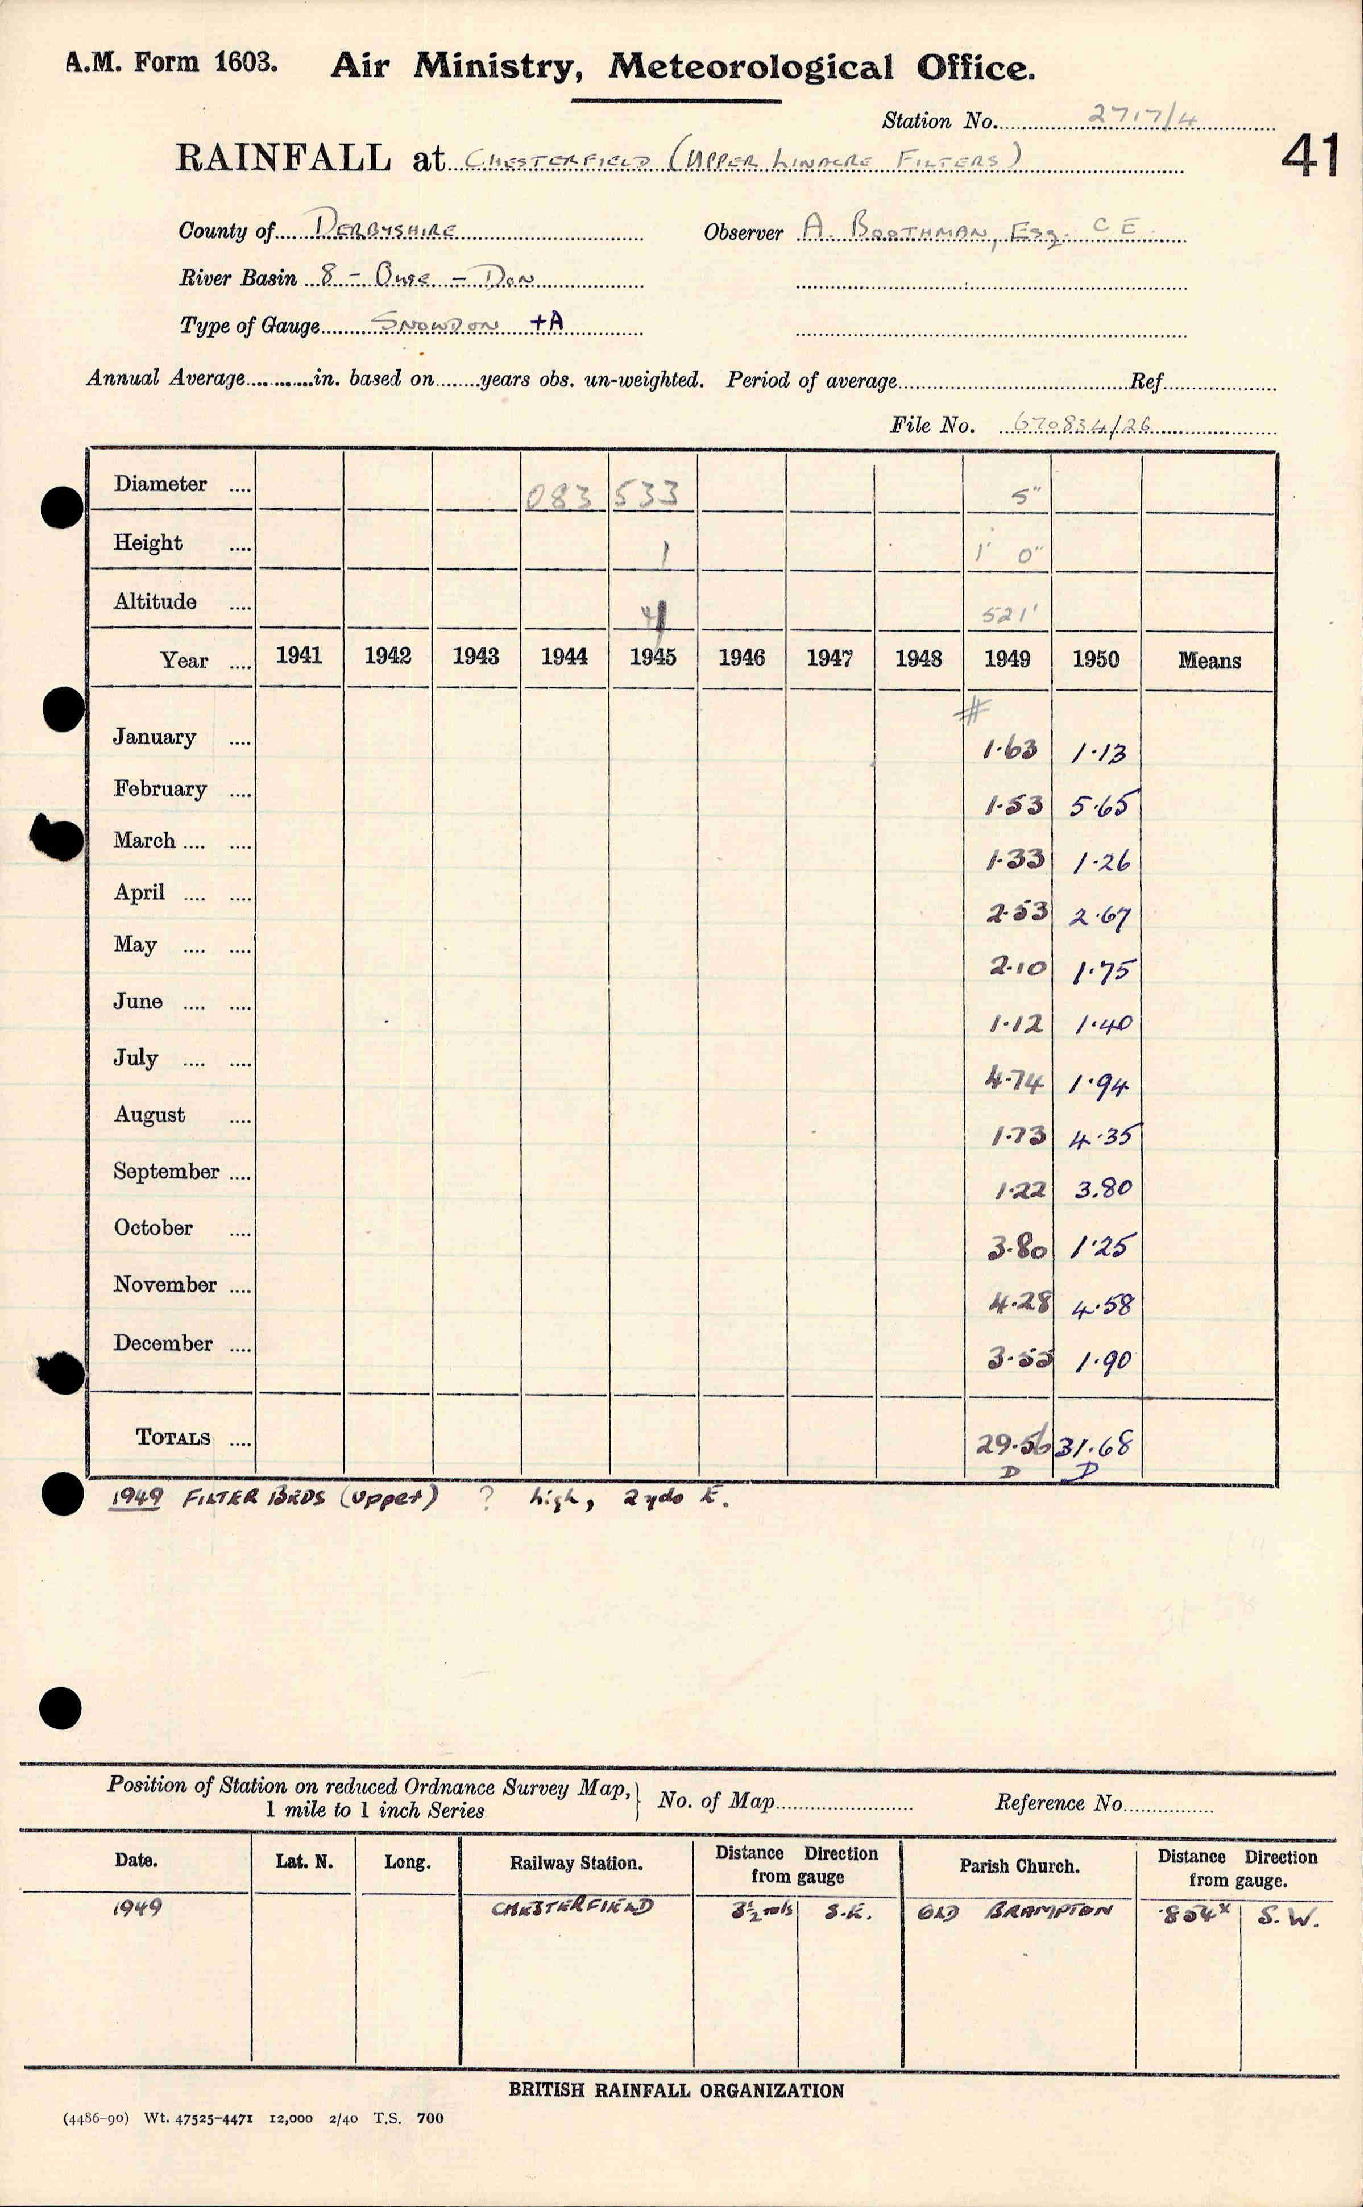 A.M. Form 1603. Air Ministry, Meteorological Office.
Station No. 2717/4
41
RAINFALL at CHESTERFIELD (UPPER LINACRE FILTERS)
County of DERBYSHIRE Observer A. BOOTHMAN, ESQ. C E
River Basin 8 - OUSE - DON
Type of Gauge SNOWDON +A
Annual Average............in. based on........years obs. un-weighted. Period of average............Ref............
File No. 670834/26
Diameter .... 083 533 5"
Height .... 1 1' 0"
Altitude .... 4 521'
Year .... 1941 1942 1943 1944 1945 1946 1947 1948 1949 1950 Means
#
January .... 1.63 1.13
February .... 1.53 5.65
March .... .... 1.33 1.26
April .... .... 2.53 2.67
May .... .... 2.10 1.75
June .... .... 1.12 1.40
July .... .... 4.74 1.94
August .... 1.73 4.35
September .... 1.22 3.80
October .... 3.80 1.25
November .... 4.28 4.58
December .... 3.55 1.90
TOTALS .... 29.56 31.68
D D
1949 FILTER BEDS (Upper) ? high, 2 yds E.
Position of Station on reduced Ordnance Survey Map, } No. of Map............ Reference No............
1 mile to 1 inch Series
Date. Lat. N. Long. Railway Station. Distance Direction from gauge Parish Church. Distance Direction from gauge.
1949 CHESTERFIELD 3½ mls S.E. OLD BRAMPTON 854x S.W.
BRITISH RAINFALL ORGANIZATION
(4486-90) Wt. 47525-4471 12,000 2/40 T.S. 700